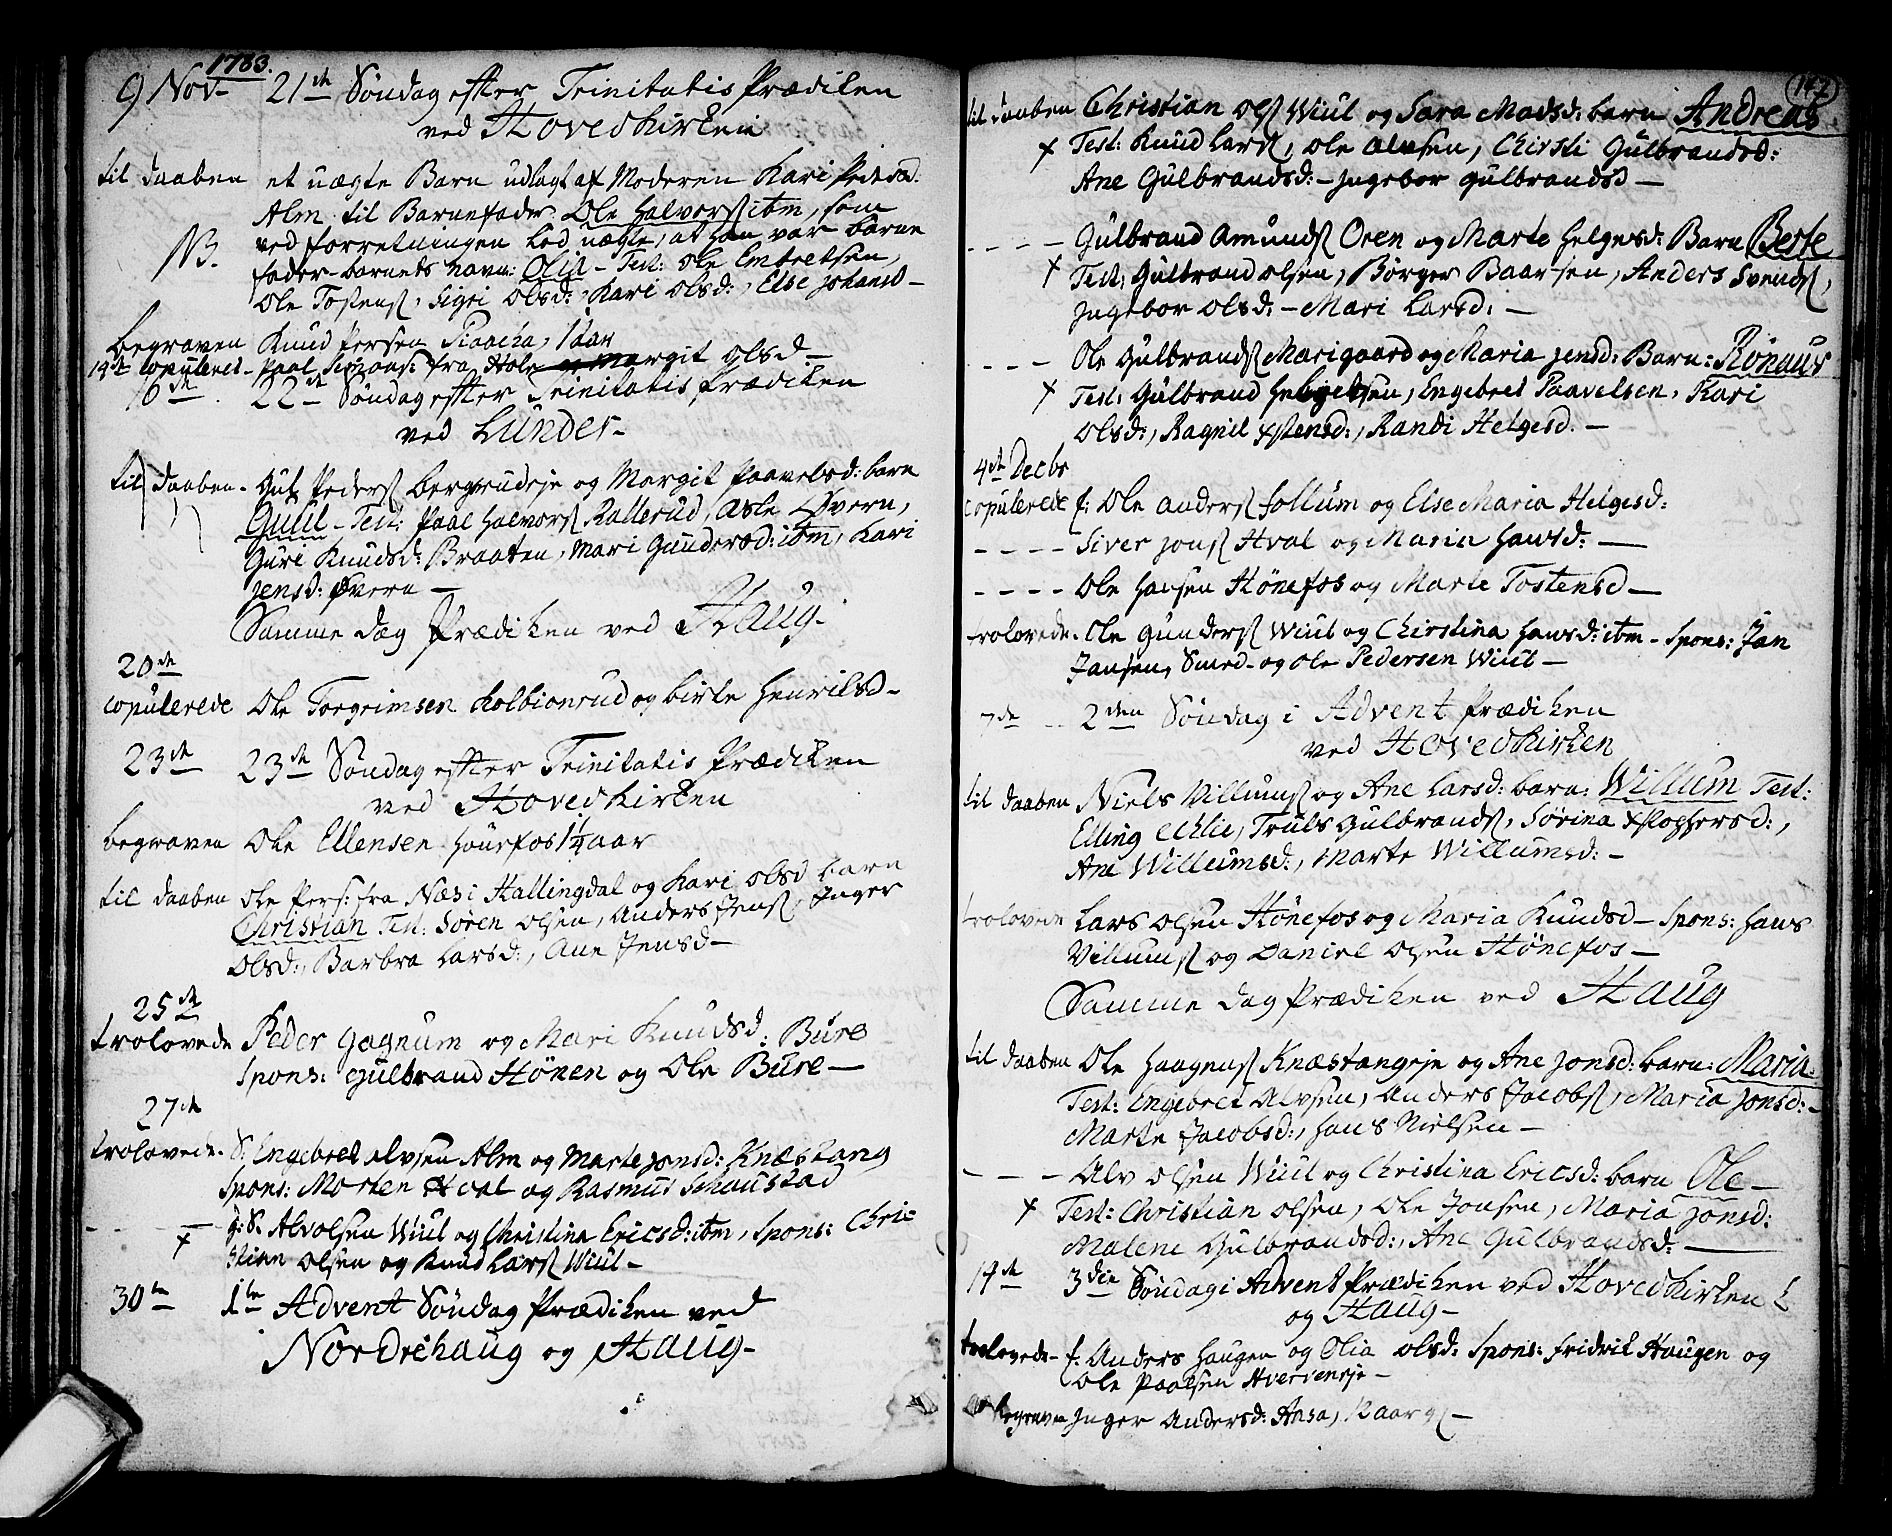 1783.
9 Nov. 21de Søndag efter Trinitatis Prædiken
ved Hovedkirken
til daaben et uægte Barn udlagt af Moderen Kari Pedersd.
Alm til Barnefader Ole Halvors. ibm, som
NB. ved forretningen lod nægte, at han var barne
fader - barnets navn: Olia - Test: Ole Embretsen,
Ole Tostens., Sigri Olsd:, Kari Olsd:, Else Johansd -
begraven Knud Persen 1 aar
14de copuleret - Paal Simons: fra Hole og Margit Olsd -
16de. 22de Søndag efter Trinitatis Prædiken
ved Lunder -
til daaben - Gul. Peders. bergsrudeje og Margit Paavelsd: barn
Gulil - Test: Paal Halvors. Rallerud, Asle Øvern,
Guri Knudsd: Braaten, Mari Gundersd: ibm, Kari
Jensd: Øvern -
Samme dag Prædiken ved Haug.
20de
copulerede Ole Torgrimsen Kolbionrud og birte Henriksd -
23de 23de Søndag efter Trinitatis Prædiken
ved Hovedkirken
begraven Ole Ellensen Hönefos 1¼ aar
til daaben Ole Pers: fra Næs i Hallingdal og Kari Olsd barn
Christian Test: Sören Olsen, Anders Jens., Inger
Olsd:, Barbra Larsd:, Ane Jensd -
25de
trolovede Peder Gagnum og Mari Knudsd: Bure
Spons: Gulbrand Hönen og Ole Bure -
27de
trolovede - S. Engebret Alvsen Alm og Marte Jonsd: Knæstang
Spons: Morten Hval og Rasmus Schaustad
- - - x g: S. Alv Olsen Wiul og Christina Ericsd: ibm, Spons: Chri-
stian Olsen og Knud Lars. Wiul -
30te 1te Advent Søndag Prædiken ved
Nordrehaug og Haug -
147
til daaben Christian Ols. Wiul og Sara Madsd: barn Andreas.
x Test: Knud Lars., Ole Alvsen, Chirsti Gulbrandsd:
Ane Gulbrandsd: - Ingebor Gulbrandsd -
- - - - Gulbrand Amunds. Oren og Marte Helgesd: Barn Berte
x Test: Gulbrand Olsen, Börger Baarsen, Anders Svends.,
Ingebor Olsd: - Mari Larsd: -
- - - Ole Gulbrands. Marigaard og Maria Jensd: Barn: Rönaug
x Test: Gulbrand Helgesen, Engebret Paavelsen, Kari
Olsd:, Ragnil Xstensd:, Randi Helgesd. -
4de Decbr
copulerede f: Ole Anders. Follum og Else Maria Helgesd:
- - - - Siver Jons. Hval og Maria Hansd: -
- - - - Ole Hansen Hönefos og Marte Tostensd -
trolovede - Ole Gunders. Wiul og Chirstina Hansd: ibm - Spons: Jan
Jansen, Smed - og Ole Pedersen Wiul -
7de - - 2den Søndag i Advent Prædiken
ved Hovedkirken
til daaben Niels Villums. og Ane Larsd: barn: Willum Test:
Elling Eklie, Truls Gulbrands., Sörina Xstophersd:,
Ane Willumsd:, Marte Willumsd: -
trolovede Lars Olsen Hönefos og Maria Knudsd - Spons: Hans
Villums. og Daniel Olsen Hönefos -
Samme dag Prædiken ved Haug
til daaben Ole Haagens. Knæstangeje og Ane Jonsd: barn: Maria.
Test: Engebret Alvsen, Anders Jacobs., Maria Jonsd: -
Marte Jacobsd:, Hans Nielsen -
- - - Alv Olsen Wiul og Christina Ericsd: barn Ole -
x Test: Christian Olsen, Ole Jonsen, Maria Jonsd:
Malene Gulbrandsd:, Ane Gulbrandsd. -
14de 3die Søndag i Advent Prædiken ved Hovedkirken
og Haug -
trolovede - f: Anders Haugen og Olia Olsd: Spons: Fridrik Haugen og
Ole Paalsen Hverveneje -
Begraven Inger Andersd: Aasa, 12 aar gl -